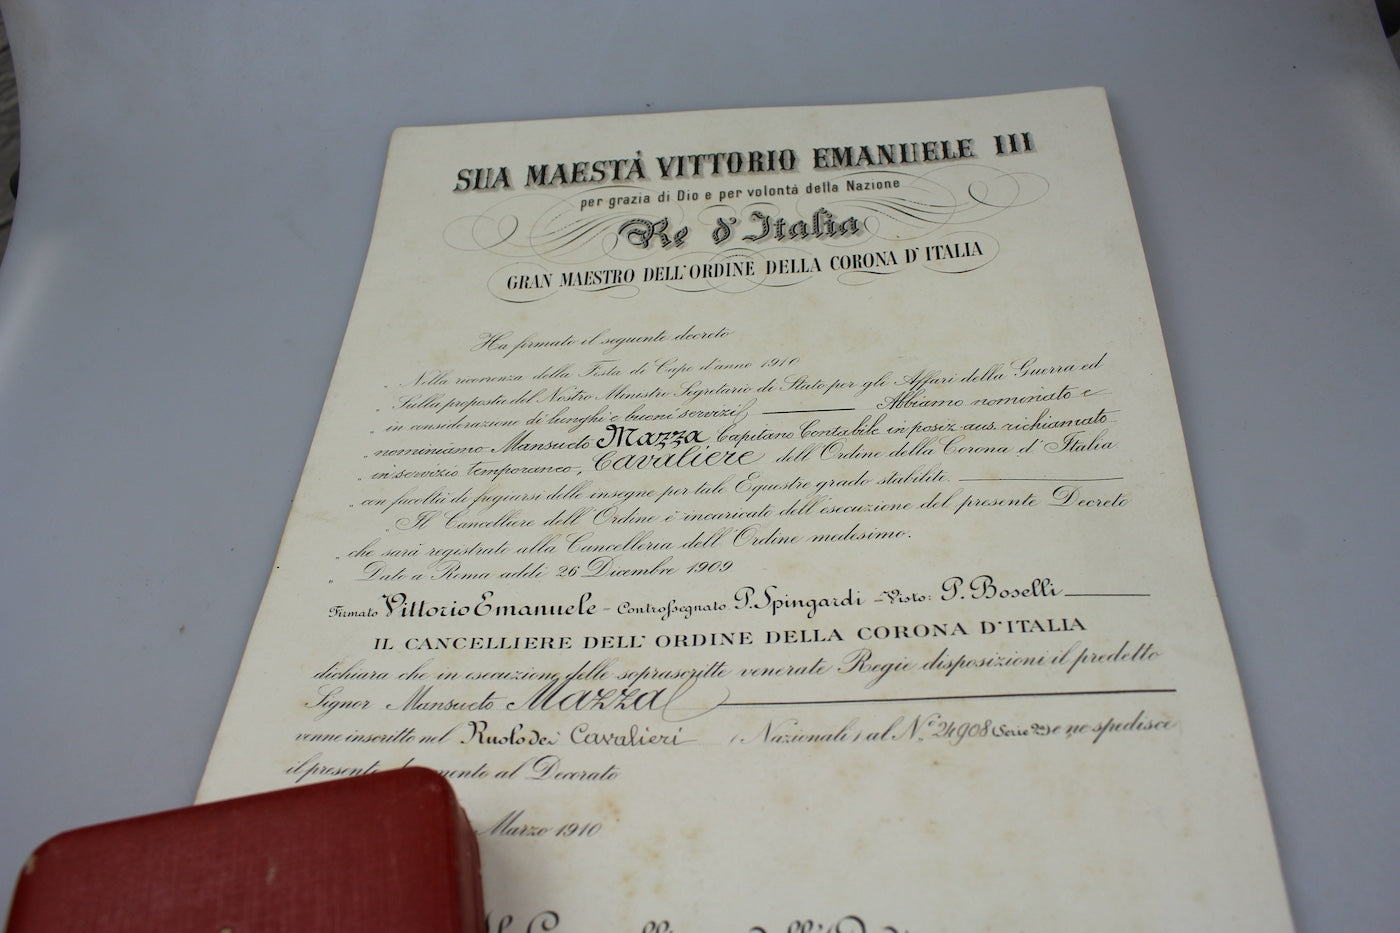 SUA MAESTÀ VITTORIO EMANUELE III
per grazia di Dio e per volontà della Nazione
Re d'Italia
GRAN MAESTRO DELL'ORDINE DELLA CORONA D'ITALIA
Ha firmato il seguente decreto
„ Nella ricorrenza della Festa di Capo d'anno 1910
„ Sulla proposta del Nostro Ministro Segretario di Stato per gli Affari della Guerra ed
„ in considerazione di lunghi e buoni servizi Abbiamo nominato e
„ nominiamo Mansueto Mazza Capitano Contabile in posiz. aus. richiamato
„ in servizio temporaneo, Cavaliere dell'Ordine della Corona d'Italia
„ con facoltà di fregiarsi delle insegne per tale Equestre grado stabilite.
„ Il Cancelliere dell'Ordine è incaricato dell'esecuzione del presente Decreto
„ che sarà registrato alla Cancelleria dell'Ordine medesimo.
„ Dato a Roma addì 26 Dicembre 1909
Firmato Vittorio Emanuele - Controssegnato P. Spingardi - Visto: P. Boselli
IL CANCELLIERE DELL'ORDINE DELLA CORONA D'ITALIA
dichiara che in esecuzione delle soprascritte venerate Regie disposizioni il predetto
Signor Mansueto Mazza
venne inscritto nel Ruolo dei Cavalieri (Nazionali) al N.° 24908 (Serie 2a) e ne spedisce
il presente al Decorato
Marzo 1910